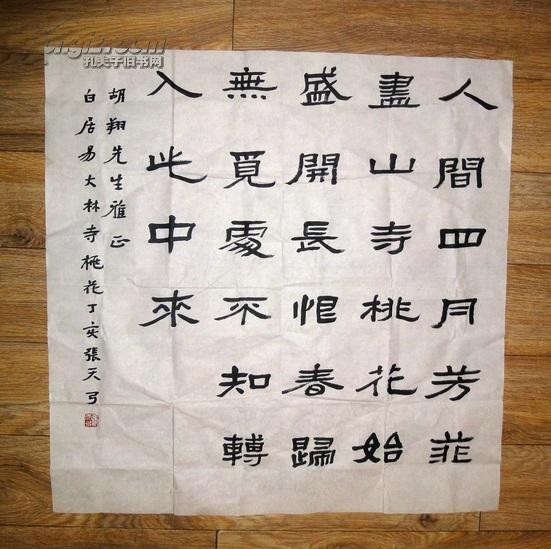 人間四月芳菲
盡山寺桃花始
盛開長恨春歸
無覓處不知轉
入此中來
胡翔先生雅正
白居易大林寺桃花丁亥張天弓
孔夫子旧书网